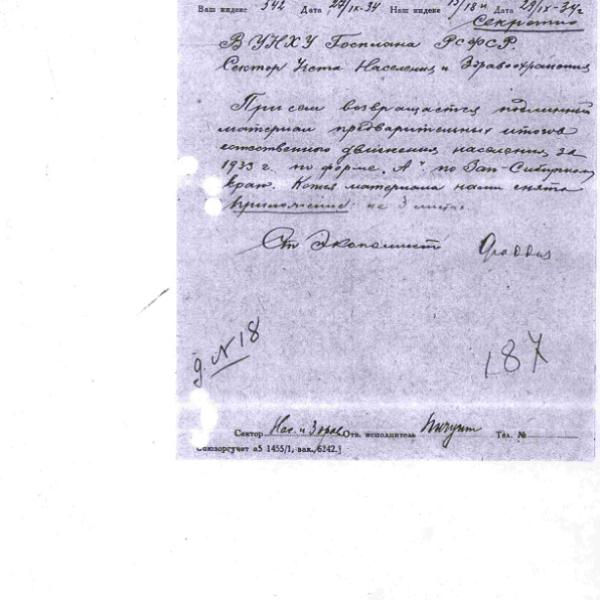 Ваш индекс 342 Дата 27/IX-34 Наш индекс 15/18н Дата 29/IX-34г
Секретно
В УНХУ Госплана РСФСР.
Сектор Учета Населения и Здравоохранения
При сем возвращается подлинный
материал предварительных итогов
естественного движения населения за
1933 г. по форме „А" по Зап-Сибирскому
краю. Копия материала нами снята
Приложение: на 3 листах.
Ст Экономист
д. N 18
187
Сектор Нас. и Здрав. Отв. исполнитель Тел. №
Союзоргучет а5 1455/1, зак. 6242.]